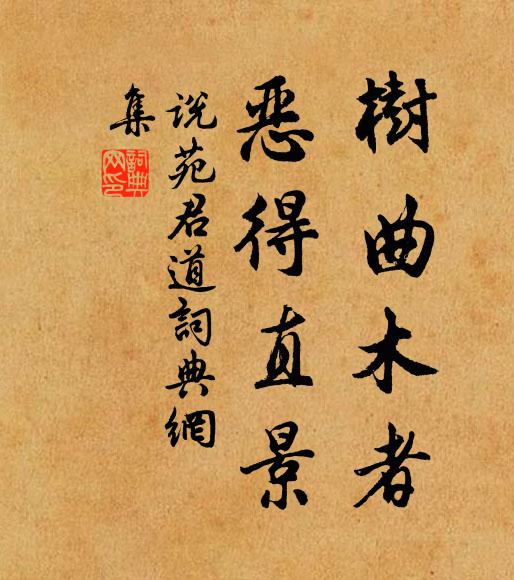 樹曲木者
惡得直景
说苑君道詞典網
集
詞典
网印